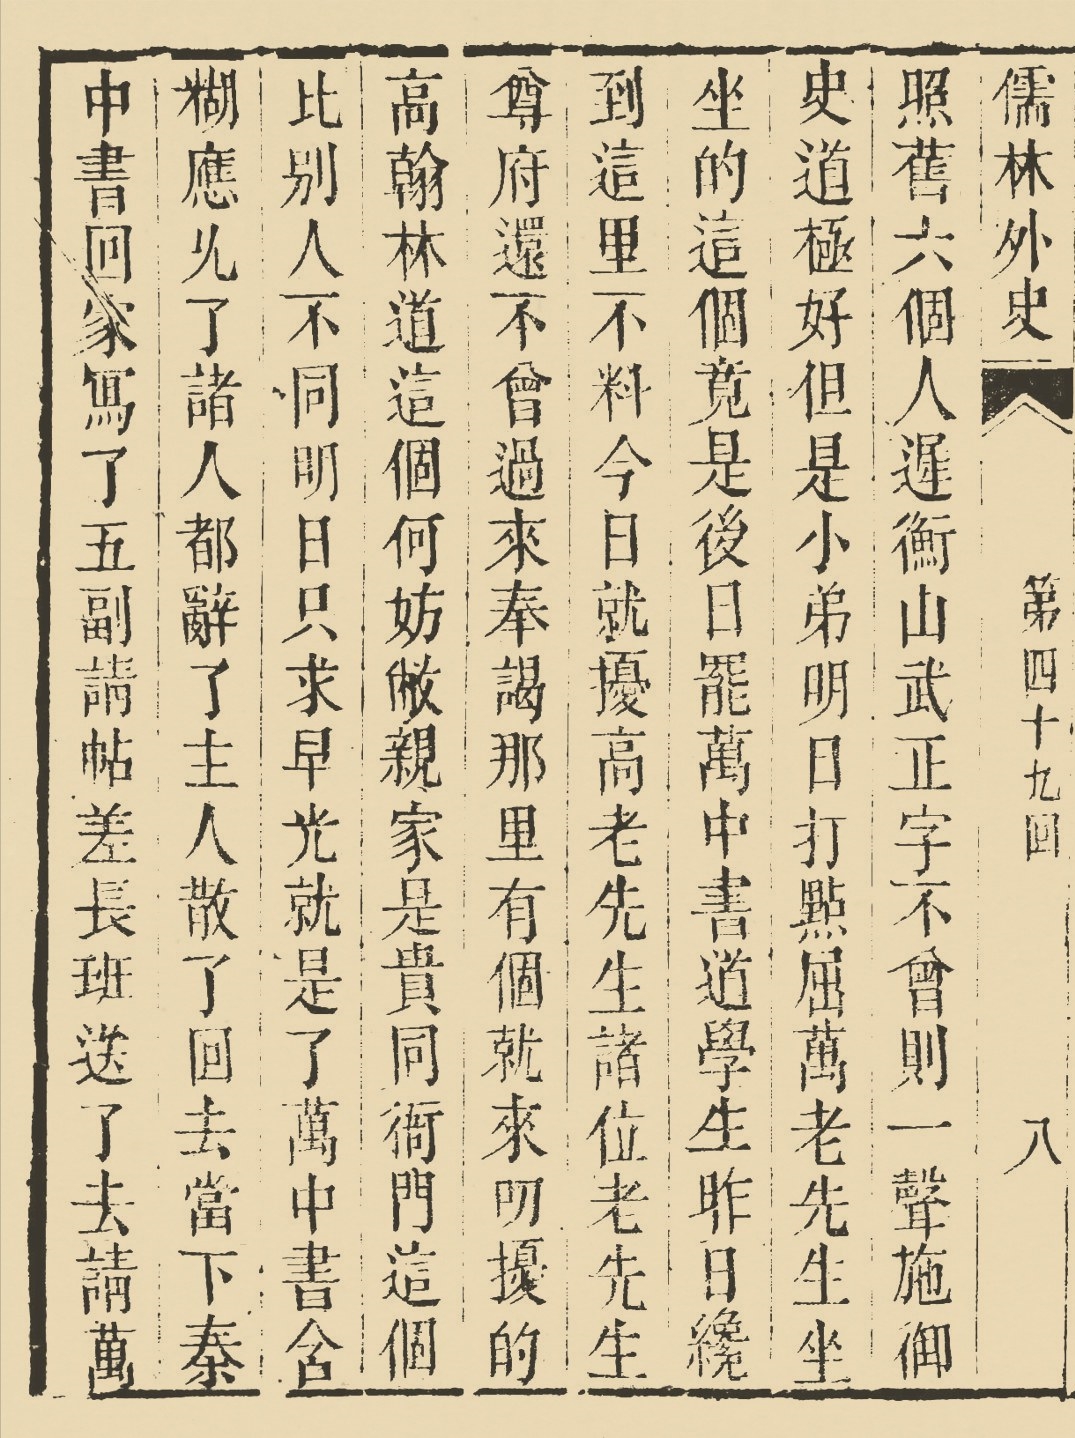 儒林外史
第四十九回
八
照舊六個人遲衡山武正字不曾則一聲施御
史道極好但是小弟明日打點屈萬老先生坐
坐的這個竟是後日罷萬中書道學生昨日纔
到這里不料今日就擾高老先生諸位老先生
尊府還不曾過來奉謁那里有個就來叨擾的
高翰林道這個何妨敝親家是貴同衙門這個
比別人不同明日只求早光就是了萬中書含
糊應允了諸人都辭了主人散了回去當下秦
中書回家寫了五副請帖差長班送了去請萬